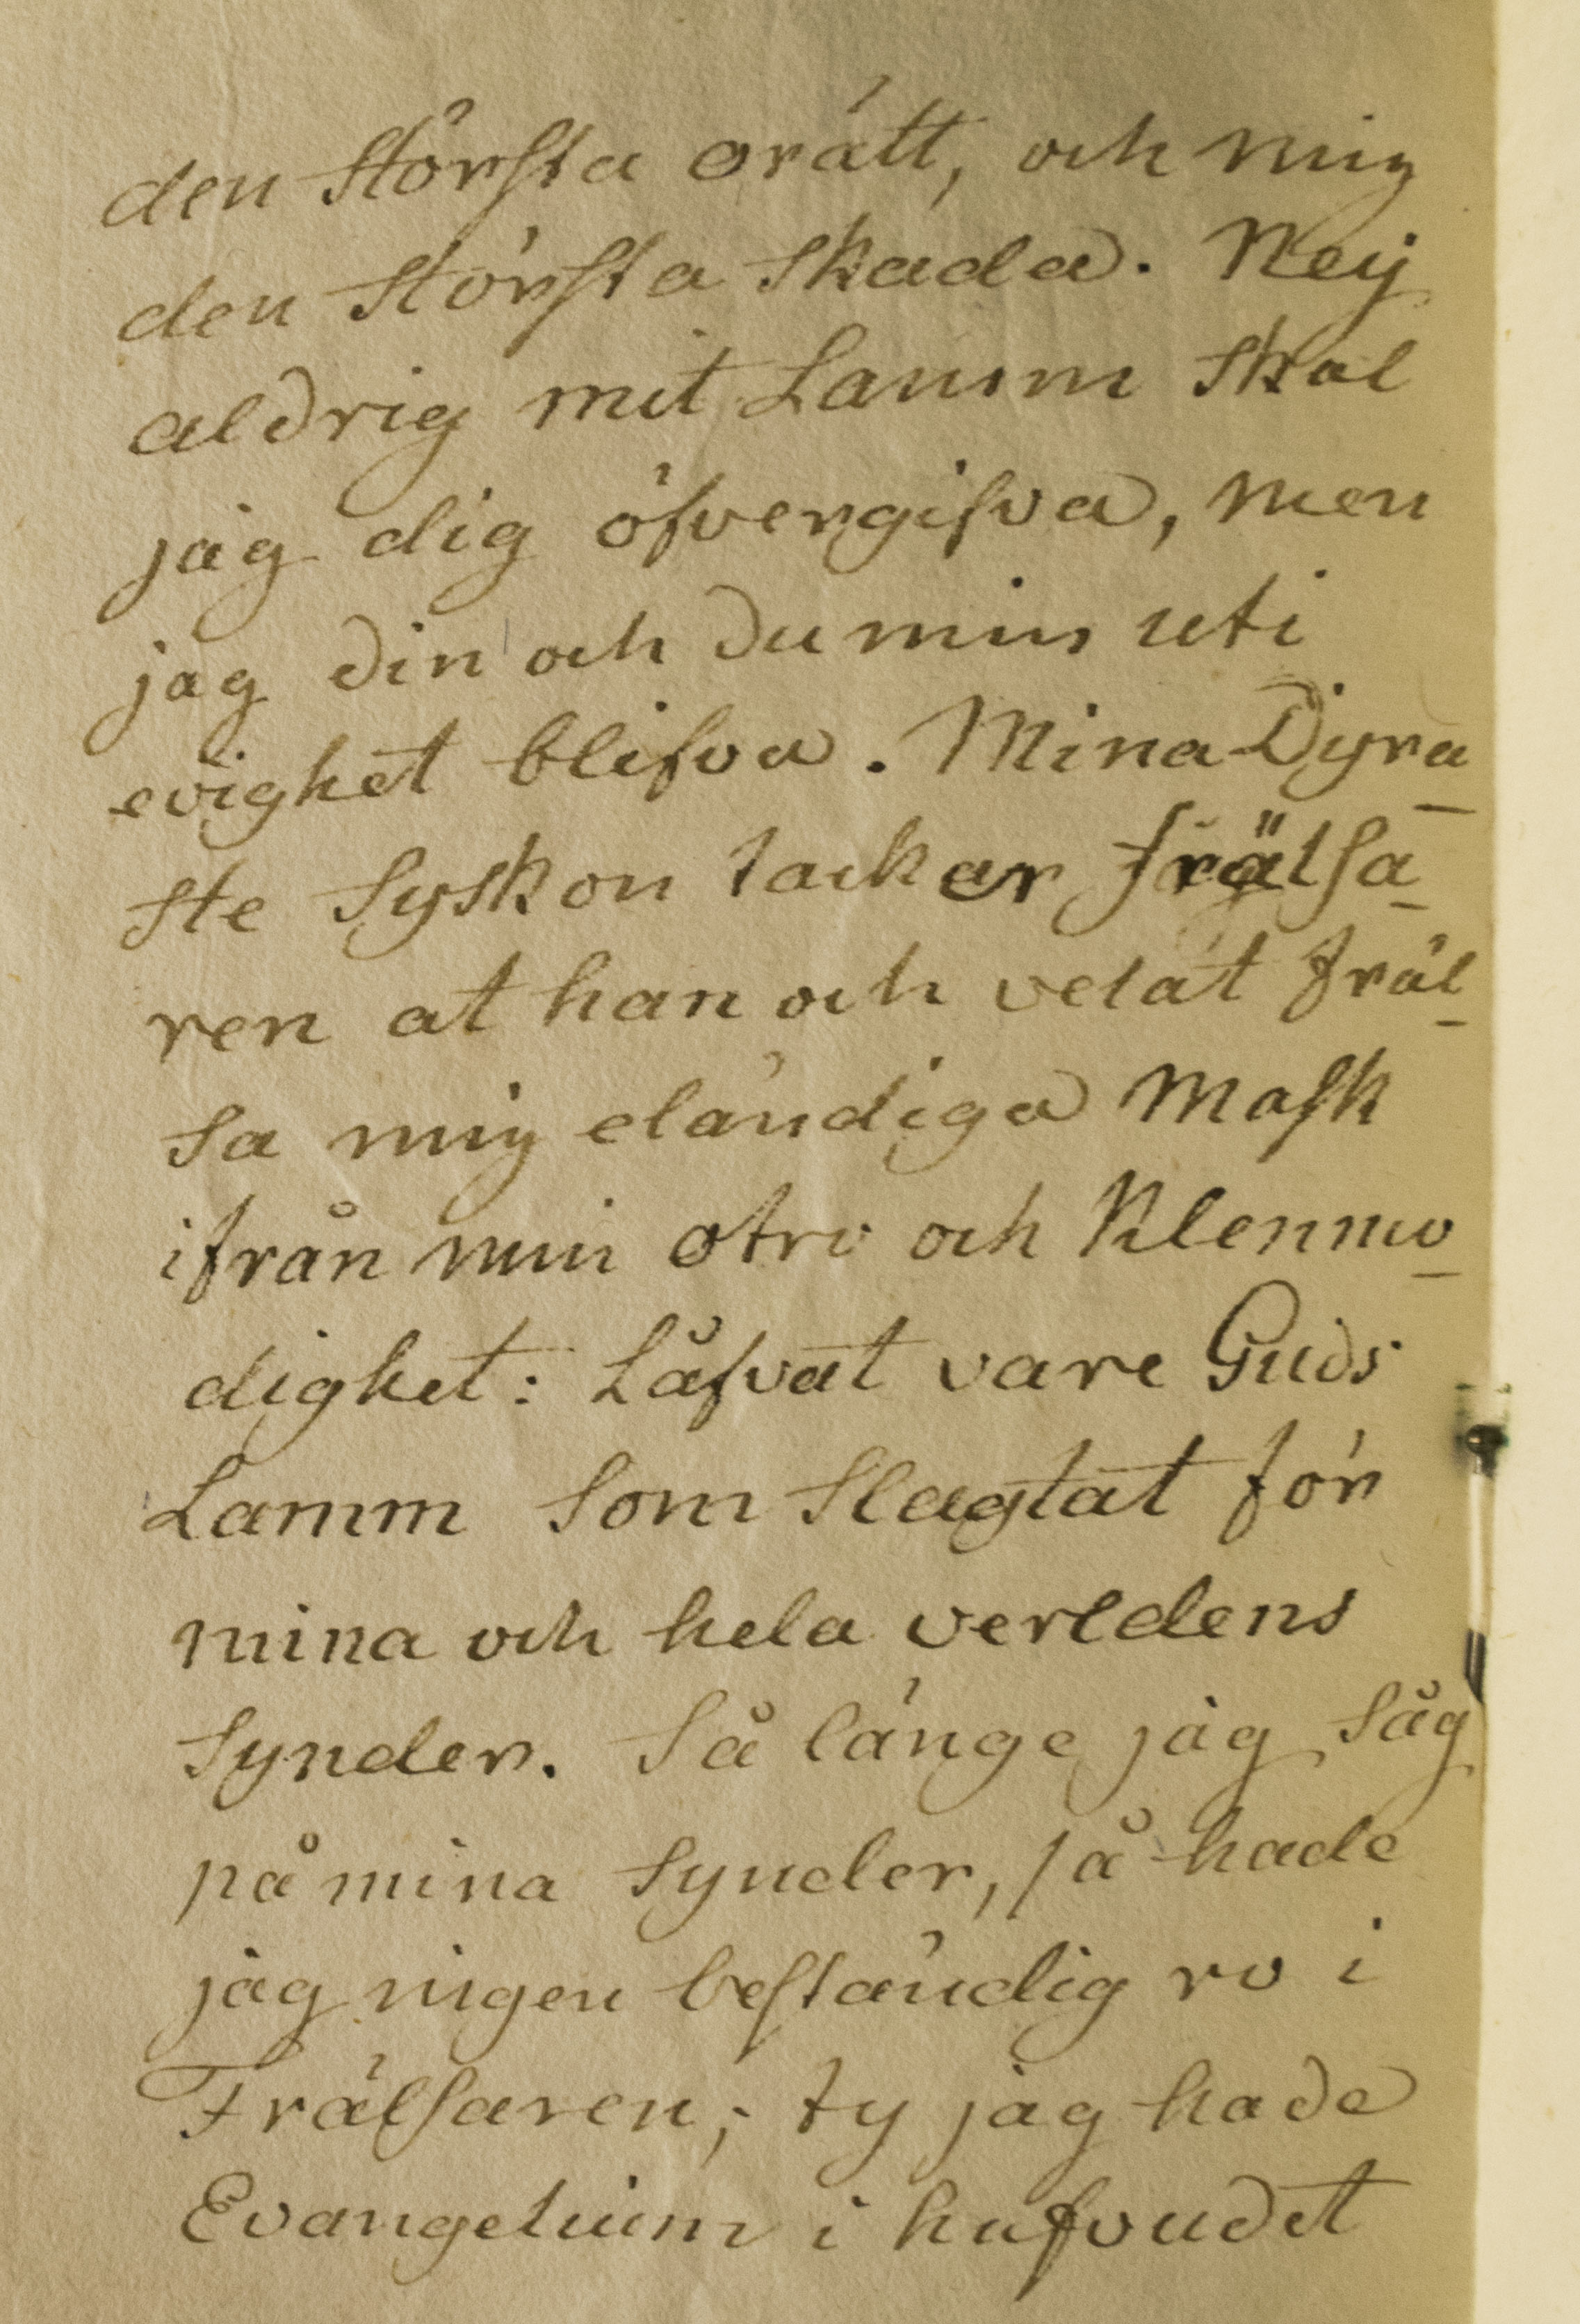 den största orätt, och mig
den största skada. Neij
aldrig mit Lamm skal
jag dig öfvergifva, men
jag din och du min uti
evighet blifva. Mina Dyra_
ste Syskon tackar frälsa_
ren at han och velat fräl_
sa mig eländiga Mask
ifrån min otro och Klenmo_
dighet: Låfvat vare Guds
Lamm som slagtat för
mina och hela verldens
Synder. Så länge jag såg
på mina Synder, så hade
jag ingen beständig ro i
Frälsaren; ty jag hade
Evangelium i hufvudet